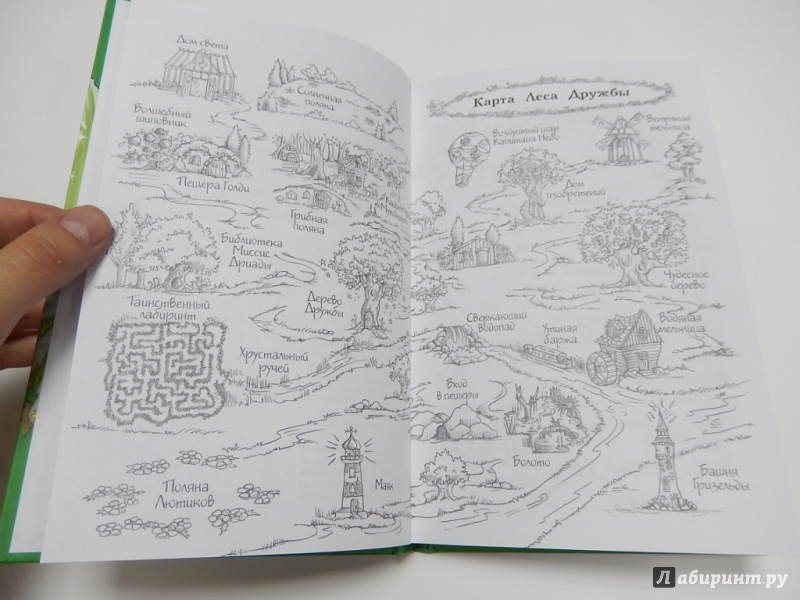 Дом света
Солнечная
поляна
Волшебный
шиповник
Пещера Голди
Грибная
поляна
Библиотека
Миссис
Дриады
Таинственный
лабиринт
Дерево
Дружбы
Хрустальный
ручей
Поляна
Лютиков
Маяк
Карта Леса Дружбы
Воздушный шар
Капитана Нево
Ветряная
мельница
Дом
изобретений
Чудесное
дерево
Сверкающий
водопад
Утиная
баржа
Водяная
мельница
Вход
в пещеры
Болото
Башня
Гризельды
Лабиринт.ру